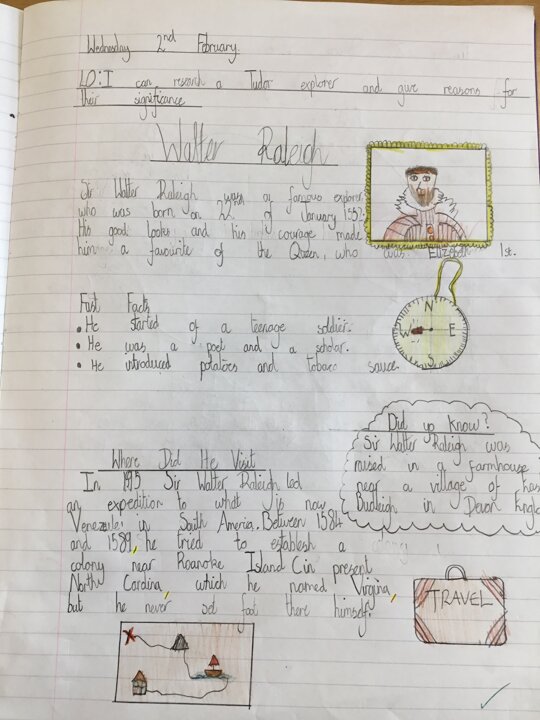 Wednesday 2nd February.
LO: I can research a Tudor explorer and give reasons for
their significance
Walter Raleigh
Sir Walter Raleigh was a famous explorer
who was born on 22nd of January 1552.
His good looks and his courage made
him a favourite of the Queen, who was Elizabeth 1st.
Fast Facts
• He started of a teenage soldier.
• He was a poet and a scholar.
• He introduced potatoes and tobaco sauce.
N
W E
S
Did you know?
Sir Walter Raleigh was
raised in a farmhouse
near a village of
Budleigh in Devon
Where Did He Visit
In Sir Walter Raleigh led
an expedition to what is now
in South America. Between 1584
and 1589, he tried to establish a
colony near Roanoke Island Cin present
North Carolina, which he named Virginia,
but he never set foot there himself.
TRAVEL